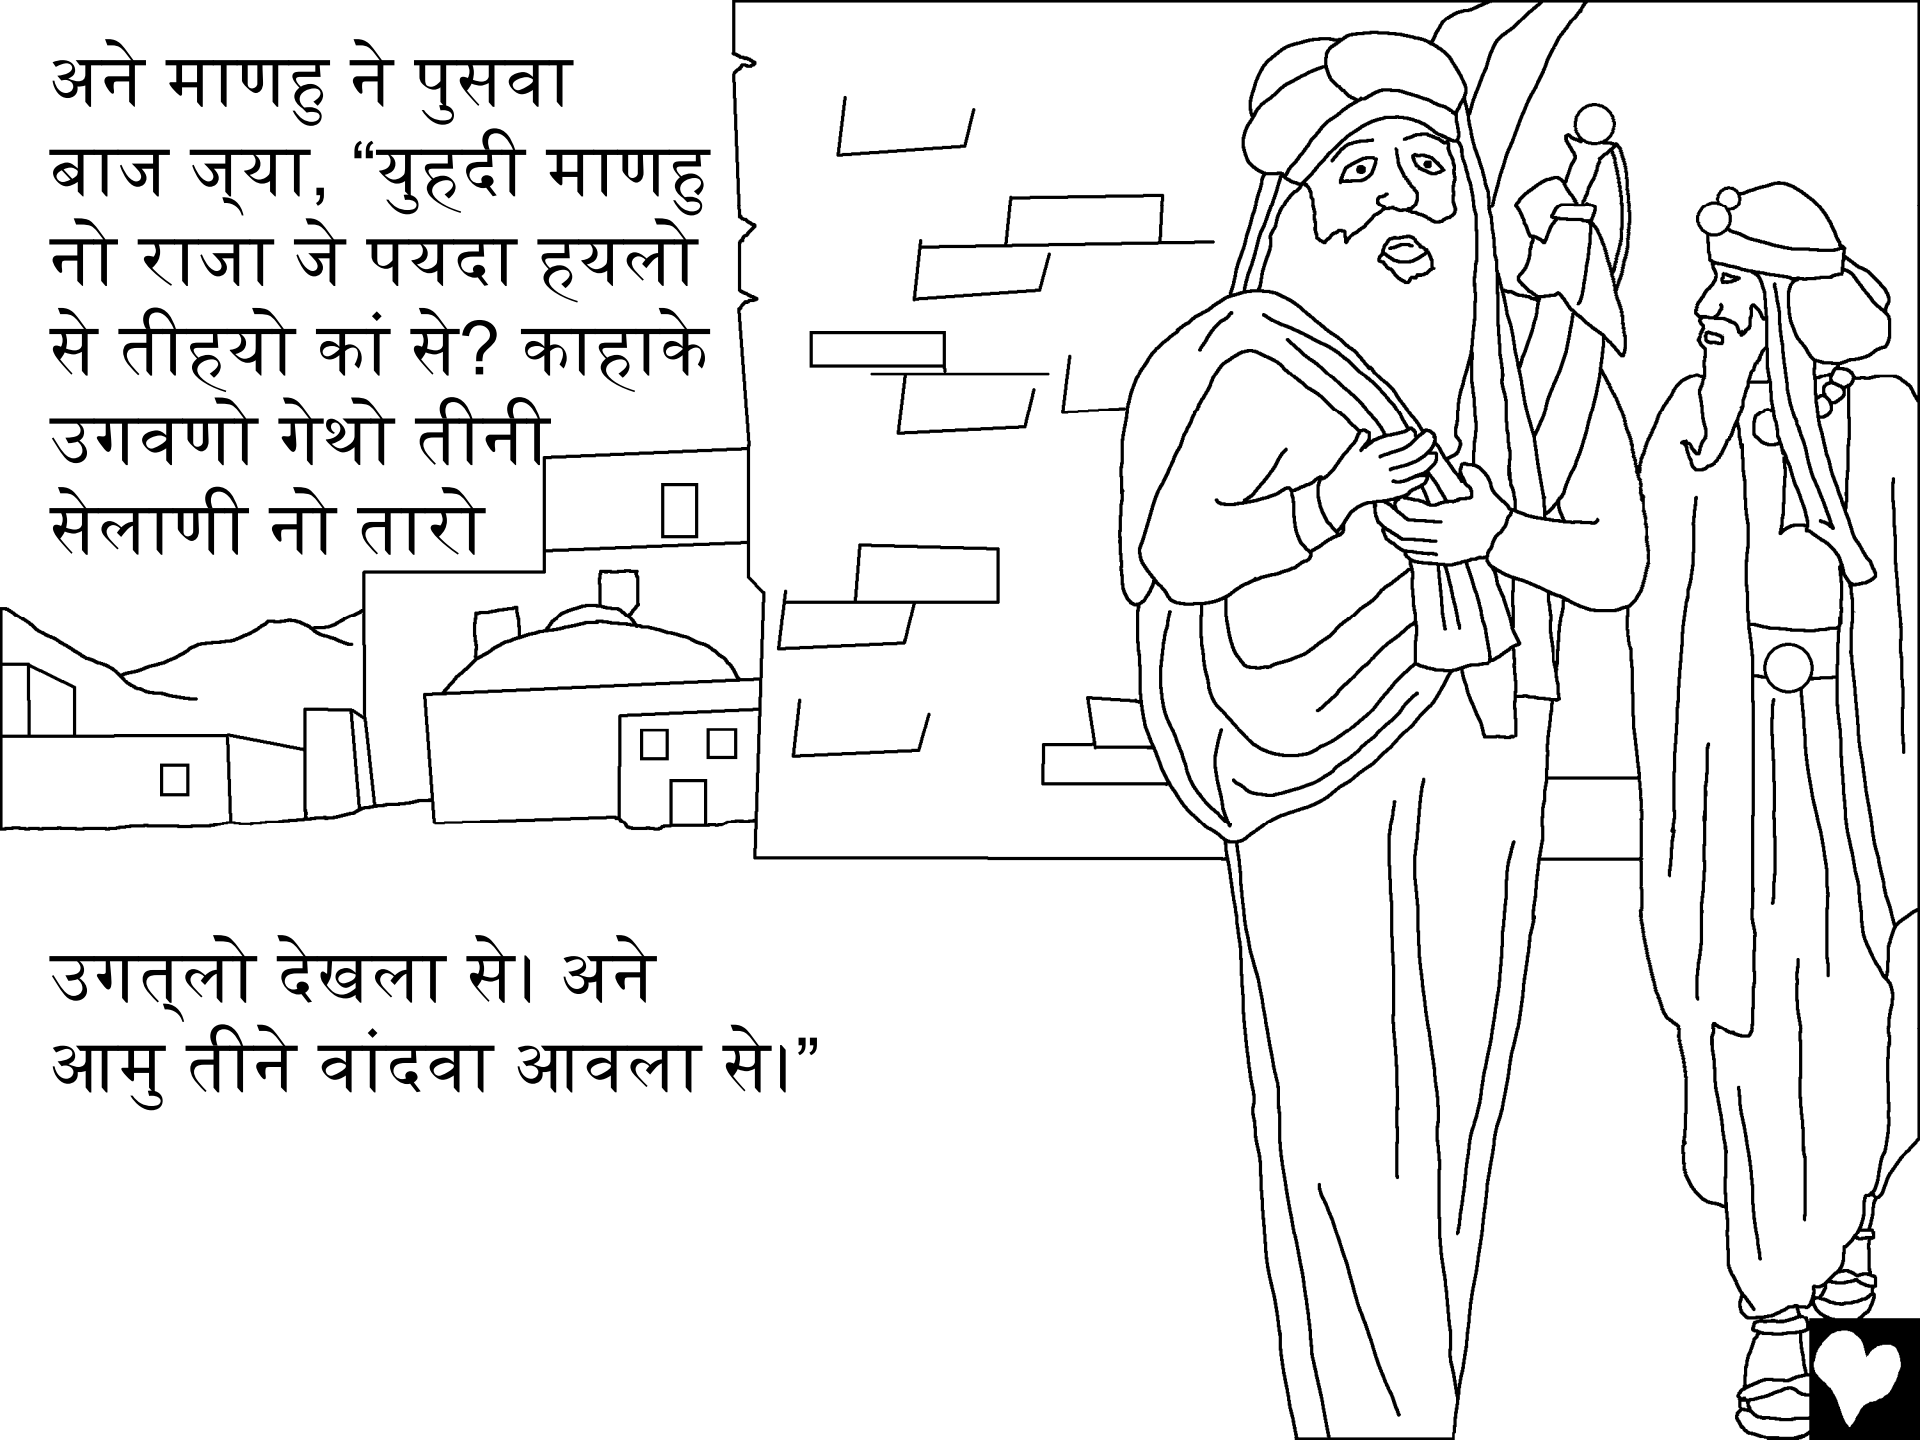 अने माणहु ने पुसवा
बाज ज्‌या, “युहदी माणहु
नो राजा जे पयदा हयलो
से तीहयो कां से? काहाके
उगवणो गेथो तीनी
सेलाणी नो तारो
उगत्‌लो देखला से। अने
आमु तीने वांदवा आवला से।”